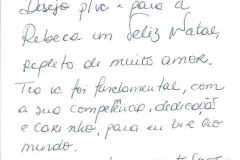 Desejo p/vc e para a
Rebeca um Feliz Natal,
repleto de muito amor.
Tia vc foi fundamental, com
a sua competência, dedicação
e carinho, para eu vir ao
mundo.